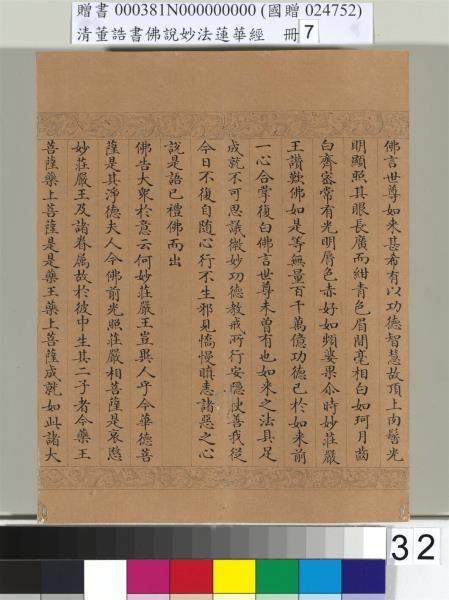 贈書 000381N000000000 (國贈 024752)
清董誥書佛說妙法蓮華經 冊 7
佛言世尊如來甚希有以功德智慧故頂上肉髻光
明顯照其眼長廣而紺青色眉間毫相白如珂月齒
白齊密常有光明脣色赤好如頻婆果尒時妙莊嚴
王讚歎佛如是等無量百千萬億功德已於如來前
一心合掌復白佛言世尊未曾有也如來之法具足
成就不可思議微妙功德教戒所行安隱快善我從
今日不復自隨心行不生邪見憍慢瞋恚諸惡之心
說是語已禮佛而出
佛告大眾於意云何妙莊嚴王豈異人乎今華德菩
薩是其淨德夫人今佛前光照莊嚴相菩薩是哀愍
妙莊嚴王及諸眷屬故於彼中生其二子者今藥王
菩薩藥上菩薩是是藥王藥上菩薩成就如此諸大
32